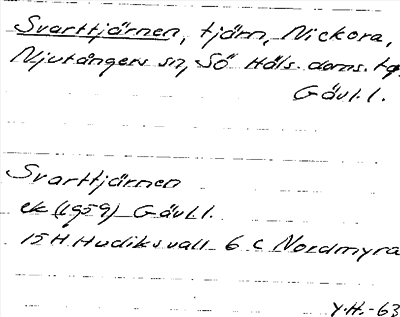 Svarttjärnen, tjärn, Nickora,
Njutångers sn, Sö Häls. doms. tg.
Gävl.l.
Svarttjärnen
ek (1959) Gävl.l.
15H Hudiksvall 6 c Nordmyra
Y.H.-63